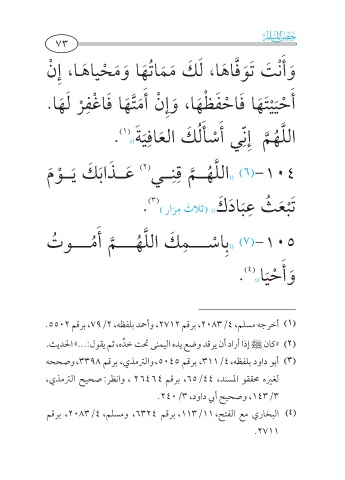 حصن المسلم
٧٣
وَأَنْتَ تَوَفَّاهَا، لَكَ مَمَاتُهَا وَمَحْيَاهَا، إِنْ
أَحْيَيْتَهَا فَاحْفَظْهَا، وَإِنْ أَمَتَّهَا فَاغْفِرْ لَهَا.
اللَّهُمَّ إِنِّي أَسْأَلُكَ العَافِيَةَ»(١).
١٠٤-(٦) «اللَّهُمَّ قِنِي(٢) عَذَابَكَ يَوْمَ
تَبْعَثُ عِبَادَكَ» (ثلاثَ مِرَارٍ)(٣).
١٠٥-(٧) «بِاسْمِكَ اللَّهُمَّ أَمُوتُ
وَأَحْيَا»(٤).
(١) أخرجه مسلم، ٤/ ٢٠٨٣، برقم ٢٧١٢، وأحمد بلفظه، ٢/ ٧٩، برقم ٥٥٠٢.
(٢) «كان ﷺ إذا أراد أن يرقد وضع يده اليمنى تحت خدِّه، ثم يقول:...» الحديث.
(٣) أبو داود بلفظه، ٤/ ٣١١، برقم ٥٠٤٥، والترمذي، برقم ٣٣٩٨، وصححه
لغيره محققو المسند، ٤٤/ ٦٥، برقم ٢٦٤٦٤، وانظر: صحيح الترمذي،
٣/ ١٤٣، وصحيح أبي داود، ٣/ ٢٤٠.
(٤) البخاري مع الفتح، ١١/ ١١٣، برقم ٦٣٢٤، ومسلم، ٤/ ٢٠٨٣، برقم
٢٧١١.